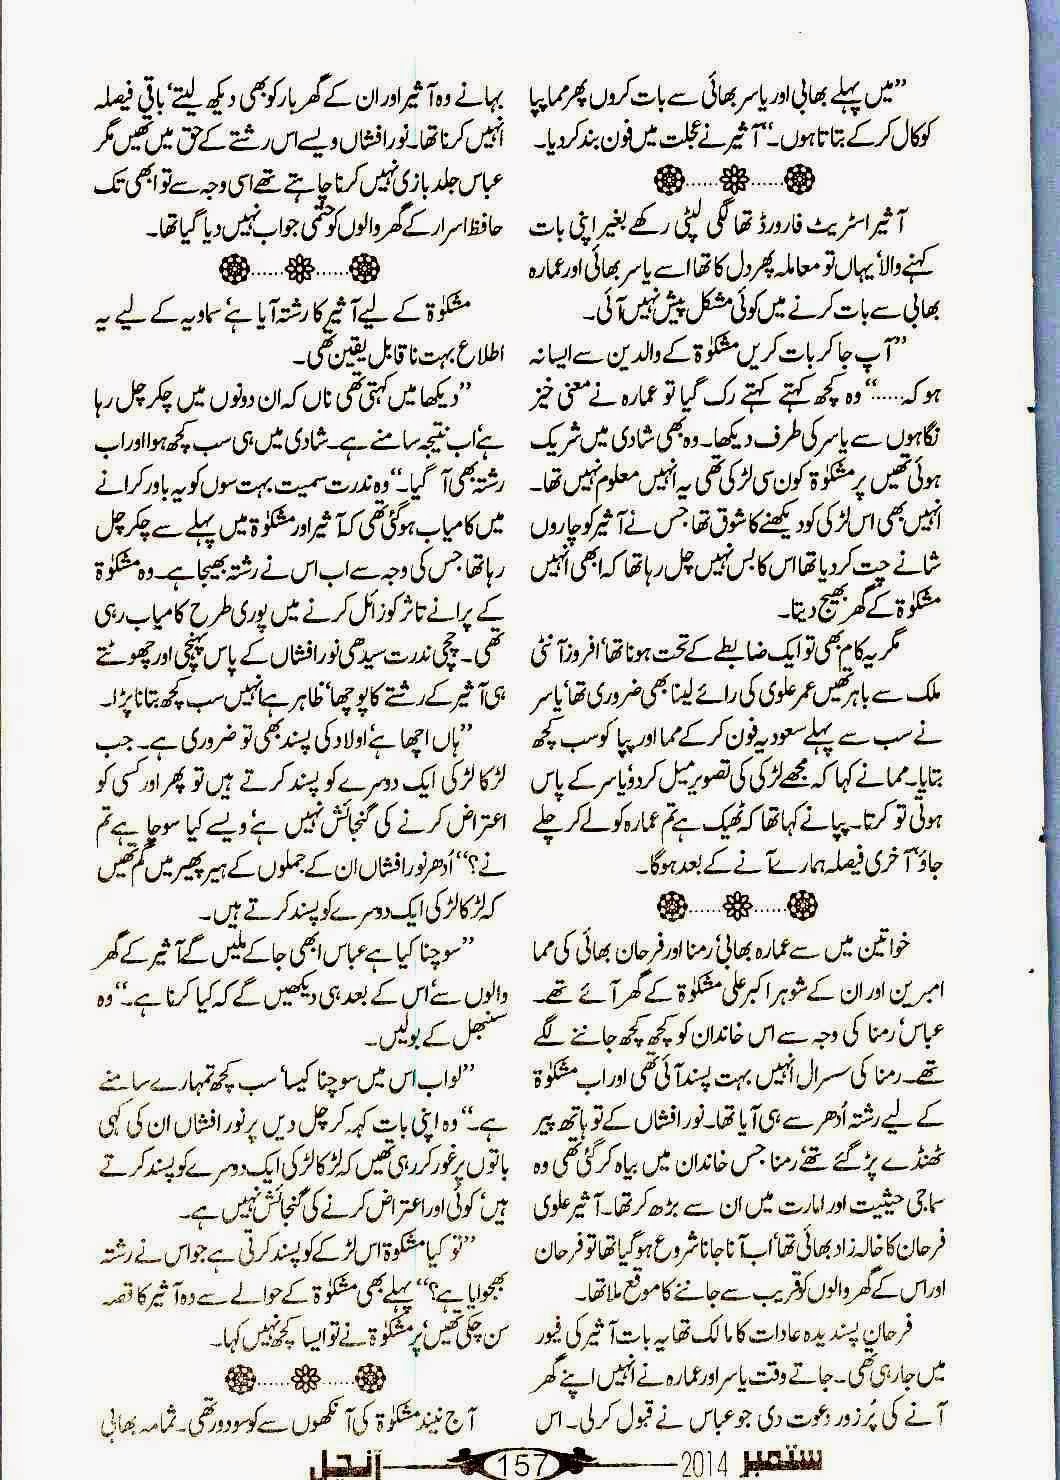 ”میں پہلے بھابی اور یاسر بھائی سے بات کروں پھر مما پپا
کو کال کرکے بتاتا ہوں۔“ آثیر نے عجلت میں فون بند کردیا۔
آثیر اسٹریٹ فارورڈ تھا لگی لپٹی رکھے بغیر اپنی بات
کہنے والا‘ یہاں تو معاملہ پھر دل کا تھا اسے یاسر بھائی اور عمارہ
بھابی سے بات کرنے میں کوئی مشکل پیش نہیں آئی۔
”آپ جاکر بات کریں مشکوٰۃ کے والدین سے ایسا نہ
ہو کہ......“ وہ کچھ کہتے کہتے رک گیا تو عمارہ نے معنی خیز
نگاہوں سے یاسر کی طرف دیکھا۔ وہ بھی شادی میں شریک
ہوئی تھیں پر مشکوٰۃ کون سی لڑکی تھی یہ انہیں معلوم نہیں تھا۔
انہیں بھی اس لڑکی کو دیکھنے کا شوق تھا جس نے آثیر کو چاروں
شانے چت کردیا تھا اس کا بس نہیں چل رہا تھا کہ ابھی انہیں
مشکوٰۃ کے گھر بھیج دیتا۔
مگر یہ کام بھی تو ایک ضابطے کے تحت ہونا تھا‘ افروز آنٹی
ملک سے باہر تھیں عمر علوی کی رائے لینا بھی ضروری تھا‘ یاسر
نے سب سے پہلے سعودیہ فون کرکے مما اور پپا کو سب کچھ
بتایا۔ ممانے کہا کہ مجھے لڑکی کی تصویر میل کردو‘ یاسر کے پاس
ہوتی تو کرتا۔ پپا نے کہا تھا کہ ٹھیک ہے تم عمارہ کو لے کر چلے
جاؤ‘ آخری فیصلہ ہمارے آنے کے بعد ہوگا۔
خواتین میں سے عمارہ بھابی‘ رمنا اور فرحان بھائی کی مما
امبرین اور ان کے شوہر اکبر علی مشکوٰۃ کے گھر آئے تھے۔
عباس‘ رمنا کی وجہ سے اس خاندان کو کچھ کچھ جاننے لگے
تھے۔ رمنا کی سسرال انہیں بہت پسند آئی تھی اور اب مشکوٰۃ
کے لیے رشتہ اُدھر سے ہی آیا تھا۔ نورافشاں کے تو ہاتھ پیر
ٹھنڈے پڑ گئے تھے‘ رمنا جس خاندان میں بیاہ کر گئی تھی وہ
سماجی حیثیت اور امارت میں ان سے بڑھ کر تھا۔ آثیر علوی
فرحان کا خالہ زاد بھائی تھا‘ اب آنا جانا شروع ہوگیا تھا تو فرحان
اور اس کے گھر والوں کو قریب سے جاننے کا موقع ملا تھا۔
فرحان پسندیدہ عادات کا مالک تھا یہ بات آثیر کی فیور
میں جارہی تھی۔ جاتے وقت یاسر اور عمارہ نے انہیں اپنے گھر
آنے کی پُرزور دعوت دی جو عباس نے قبول کرلی۔ اس
بہانے وہ آثیر اور ان کے گھر بار کو بھی دیکھ لیتے‘ باقی فیصلہ
انہیں کرنا تھا۔ نورافشاں ویسے اس رشتے کے حق میں تھیں مگر
عباس جلد بازی نہیں کرنا چاہتے تھے اسی وجہ سے تو ابھی تک
حافظ اسرار کے گھر والوں کو حتمی جواب نہیں دیا گیا تھا۔
مشکوٰۃ کے لیے آثیر کا رشتہ آیا ہے‘ سماویہ کے لیے یہ
اطلاع بہت ناقابل یقین تھی۔
”دیکھا میں کہتی تھی ناں کہ ان دونوں میں چکر چل رہا
ہے‘ اب نتیجہ سامنے ہے۔ شادی میں ہی سب کچھ ہوا اور اب
رشتہ بھی آگیا۔“ وہ ندرت سمیت بہت سوں کو یہ باور کرانے
میں کامیاب ہوگئی تھی کہ آثیر اور مشکوٰۃ میں پہلے سے چکر چل
رہا تھا جس کی وجہ سے اب اس نے رشتہ بھیجا ہے۔ وہ مشکوٰۃ
کے پرانے تاثر کو زائل کرنے میں پوری طرح کامیاب رہی
تھی۔ چچی ندرت سیدھی نورافشاں کے پاس پہنچی اور چھوٹتے
ہی آثیر کے رشتے کا پوچھا‘ ظاہر ہے انہیں سب کچھ بتانا پڑا۔
”ہاں اچھا ہے‘ اولاد کی پسند بھی تو ضروری ہے۔ جب
لڑکا لڑکی ایک دوسرے کو پسند کرتے ہیں تو پھر اور کسی کو
اعتراض کرنے کی گنجائش نہیں ہے‘ ویسے کیا سوچا ہے تم
نے؟“ اُدھر نورافشاں ان کے جملوں کے ہیر پھیر میں گم تھیں
کہ لڑکا لڑکی ایک دوسرے کو پسند کرتے ہیں۔
”سوچنا کیا ہے عباس ابھی جاکے ملیں گے آثیر کے گھر
والوں سے‘ اس کے بعد ہی دیکھیں گے کہ کیا کرنا ہے۔“ وہ
سنبھل کے بولیں۔
”لو اب اس میں سوچنا کیسا‘ سب کچھ تمہارے سامنے
ہے۔“ وہ اپنی بات کہہ کر چل دیں پر نورافشاں ان کی کہی
باتوں پر غور کررہی تھیں کہ لڑکا لڑکی ایک دوسرے کو پسند کرتے
ہیں‘ کوئی اور اعتراض کرنے کی گنجائش نہیں ہے۔
”تو کیا مشکوٰۃ اس لڑکے کو پسند کرتی ہے جو اس نے رشتہ
بھجوایا ہے؟“ پہلے بھی مشکوٰۃ کے حوالے سے وہ آثیر کا قصہ
سن چکی تھیں‘ پر مشکوٰۃ نے تو ایسا کچھ نہیں کہا۔
آج نیند مشکوٰۃ کی آنکھوں سے کوسو دور تھی۔ ثمامہ بھابی
ستمبر 2014 157 آنچل